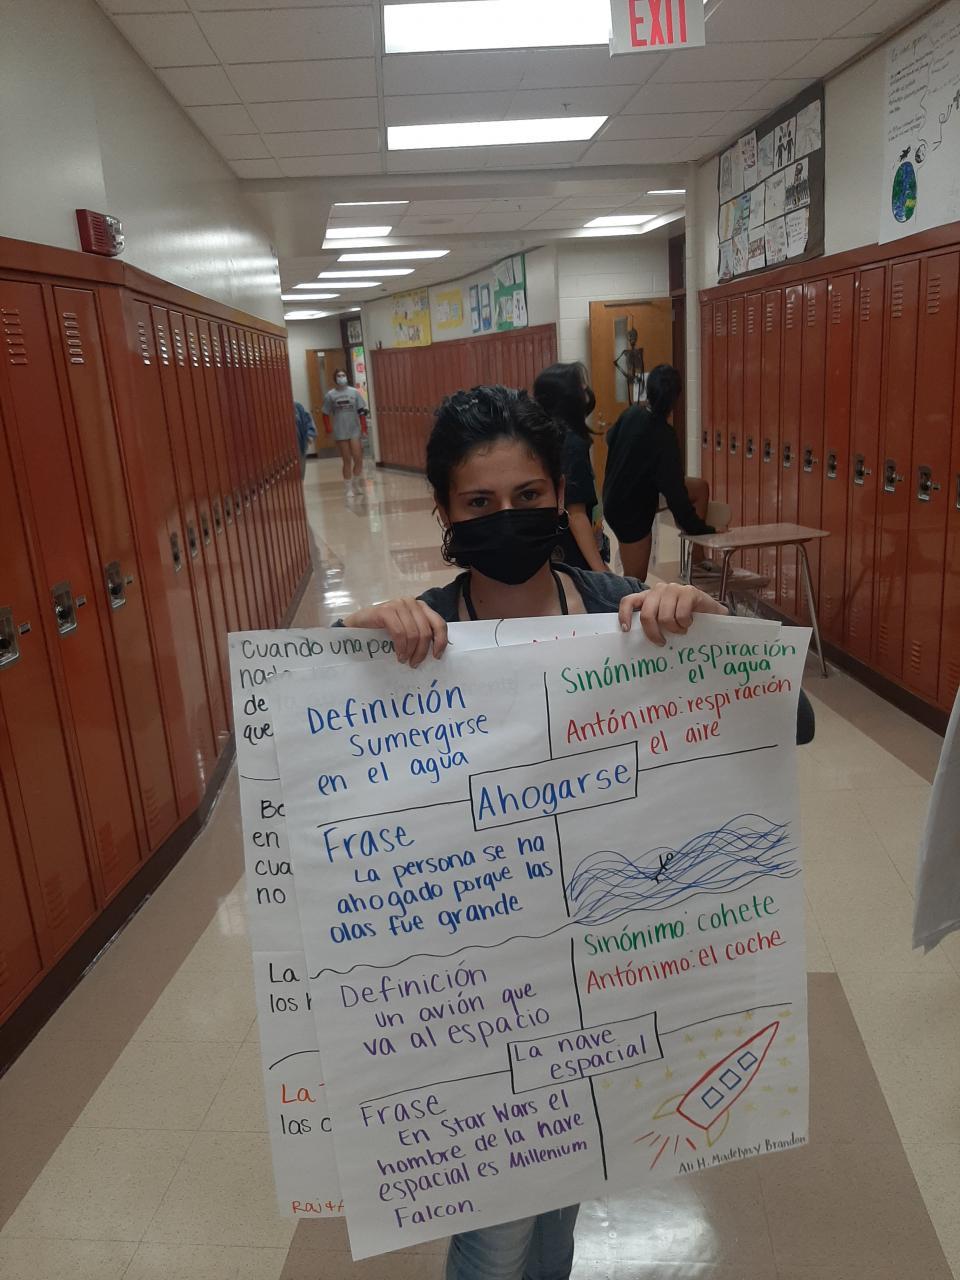 EXIT
Cuando una pe
nad
de
que
Definición
Sumergirse
en el agua
Sinónimo: respiración
el agua
Antónimo: respiración
el aire
Ahogarse
Frase
La persona se ha
ahogado porque las
olas fue grande
en
cua
no
Sinónimo: cohete
Antónimo: el coche
La
los
Definición
un avión que
va al espacio
La nave
espacial
Frase
En Star Wars el
hombre de la nave
espacial es Millenium
Falcon.
La
las
Ali H. Madelyn y Brandon